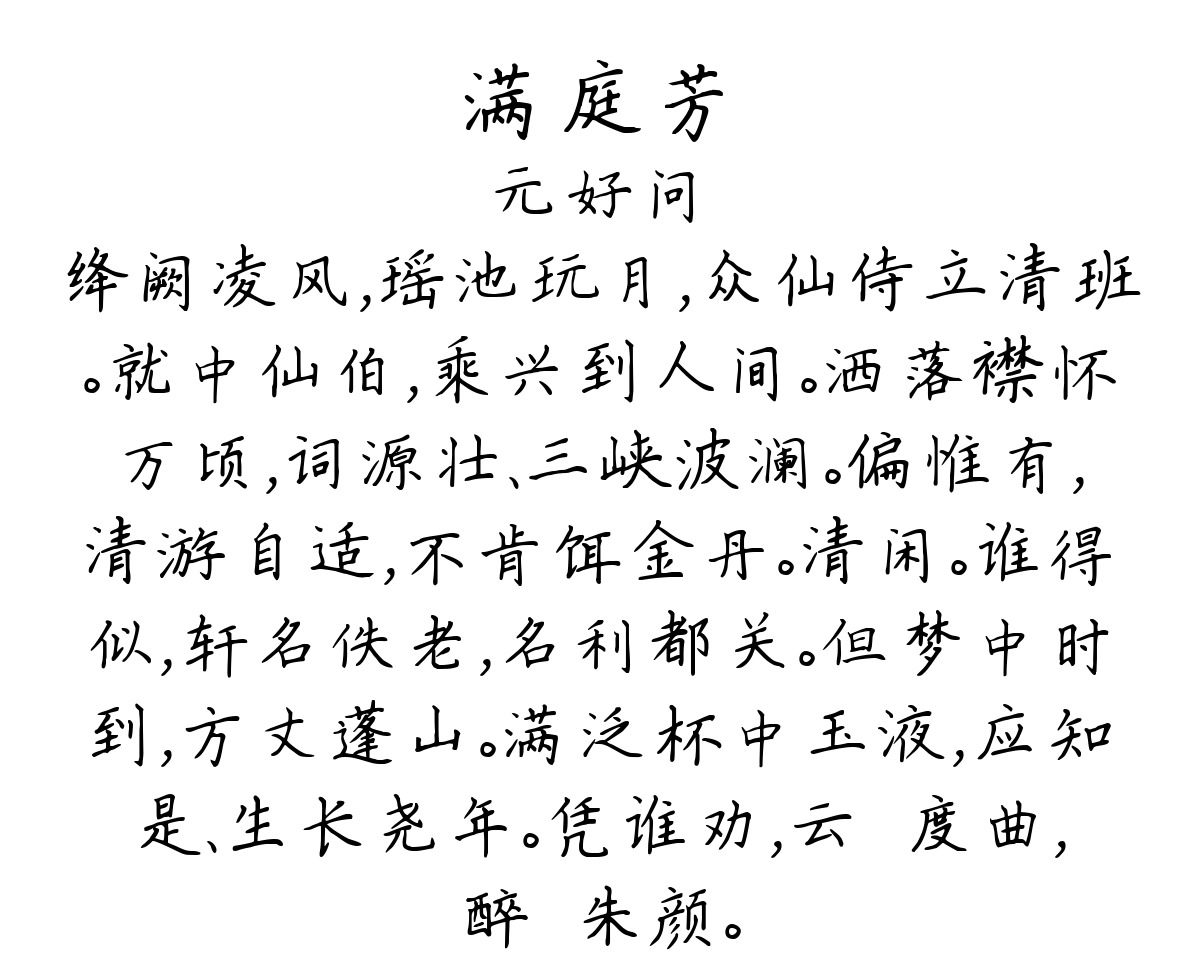 满庭芳
元好问
绛阙凌风,瑶池玩月,众仙侍立清班
。就中仙伯,乘兴到人间。洒落襟怀
万顷,词源壮、三峡波澜。偏惟有,
清游自适,不肯饵金丹。清闲。谁得
似,轩名佚老,名利都关。但梦中时
到,方丈蓬山。满泛杯中玉液,应知
是、生长尧年。凭谁劝,云 度曲,
醉 朱颜。